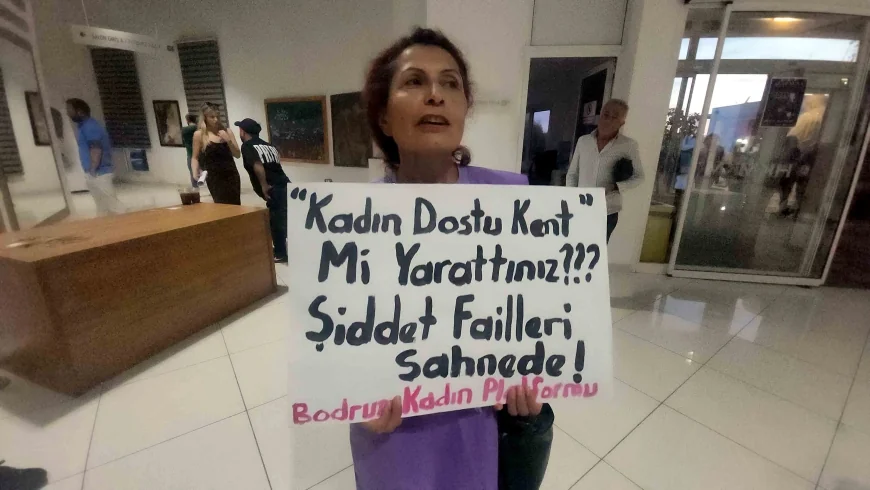 "Kadın Dostu Kent"
Mi Yarattınız???
Şiddet Failleri
Sahnede!
Bodrum Kadın Platformu